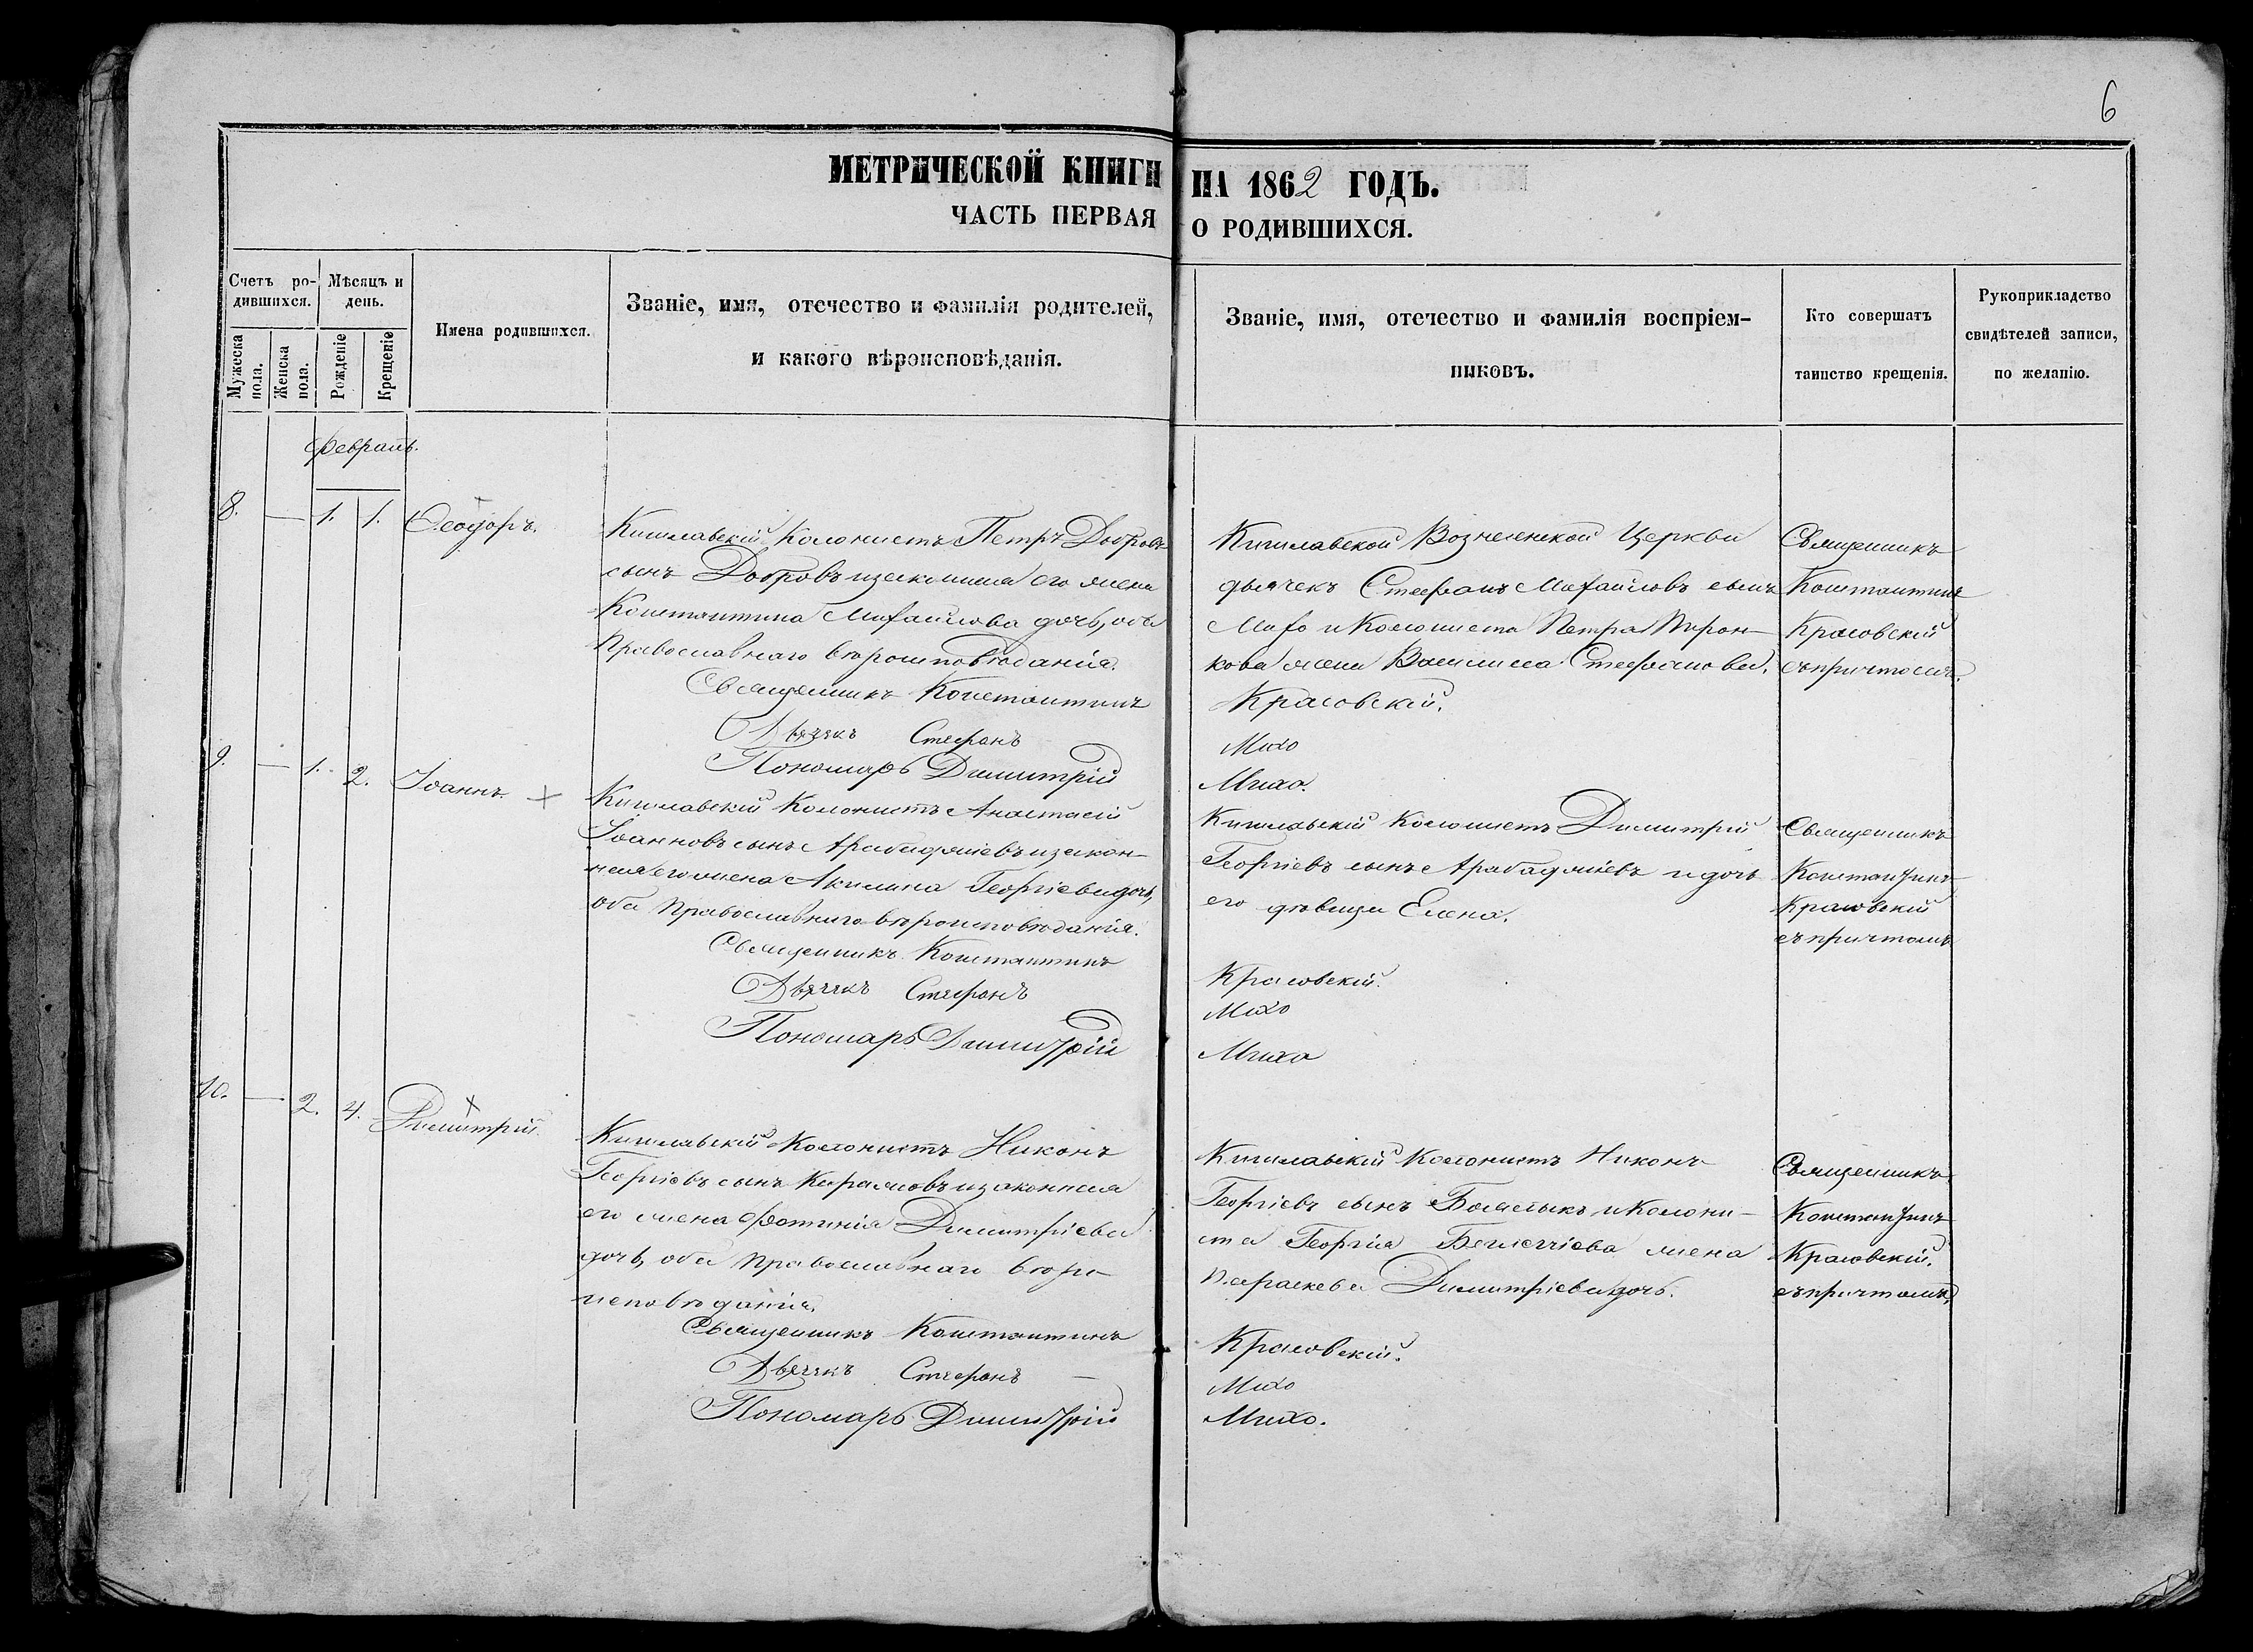 6
МЕТРИЧЕСКОЙ КНИГИ НА 1862 ГОДЪ.
ЧАСТЬ ПЕРВАЯ О РОДИВШИХСЯ.
Счетъ ро-
дившихся.
Мужеска пола.
Женска пола.
Мѣсяцъ и
день.
Рожденіе
Крещеніе
Имена родившихся.
Званіе, имя, отечество и фамилія родителей,
и какого вѣроисповѣданія.
Званіе, имя, отечество и фамилія воспріем-
никовъ.
Кто совершатъ
таинство крещенія.
Рукоприкладство
свидѣтелей записи,
по желанію.
Февраль.
8. — 1. 1. Ѳеодоръ.
Кишлавскій Колонистъ Петръ Добровъ
сынъ Добровъ изаконная его жена
Константина Михайлова дочь, оба
Православнаго вѣроисповѣданія.
Священникъ Константинъ
Дьячекъ Стефанъ
Пономарь Димитрій
Кишлавской Вознесенской Церкви
дьячекъ Стефанъ Михайловъ сынъ
Михо и Колониста Петра
кова жена Василиса Стефанова.
Красовскій.
Михо
Михо.
Священникъ
Константинъ
Красовскій
съпричтомъ.
9. — 1. 2. Іоаннъ.
Кишлавскій Колонистъ Анастасій
Іоанновъ сынъ Арабаджіевъ изакон-
ная его жена Акилина Георгіева дочь,
оба Православнаго вѣроисповѣданія.
Священникъ Константинъ
Дьячекъ Стефанъ
Пономарь Димитрій
Кишлавскій Колонистъ Димитрій
Георгіевъ сынъ Арабаджіевъ и дочь
его дѣвица Елена.
Красовскій.
Михо
Михо
Священникъ
Константинъ
Красовскій
съпричтомъ
10. — 2. 4. Димитрій.
Кишлавскій Колонистъ Никонъ
Георгіевъ сынъ изаконная
его жена Фотинія Димитріева
дочь, оба Православнаго вѣро-
исповѣданія.
Священникъ Константинъ
Дьячекъ Стефанъ —
Пономарь Димитрій
Кишлавскій Колонистъ Никонъ
Георгіевъ сынъ и Колони-
ста Георгія жена
Параскева Димитріева дочь.
Красовскій.
Михо
Михо.
Священникъ
Константинъ
Красовскій.
съпричтомъ.